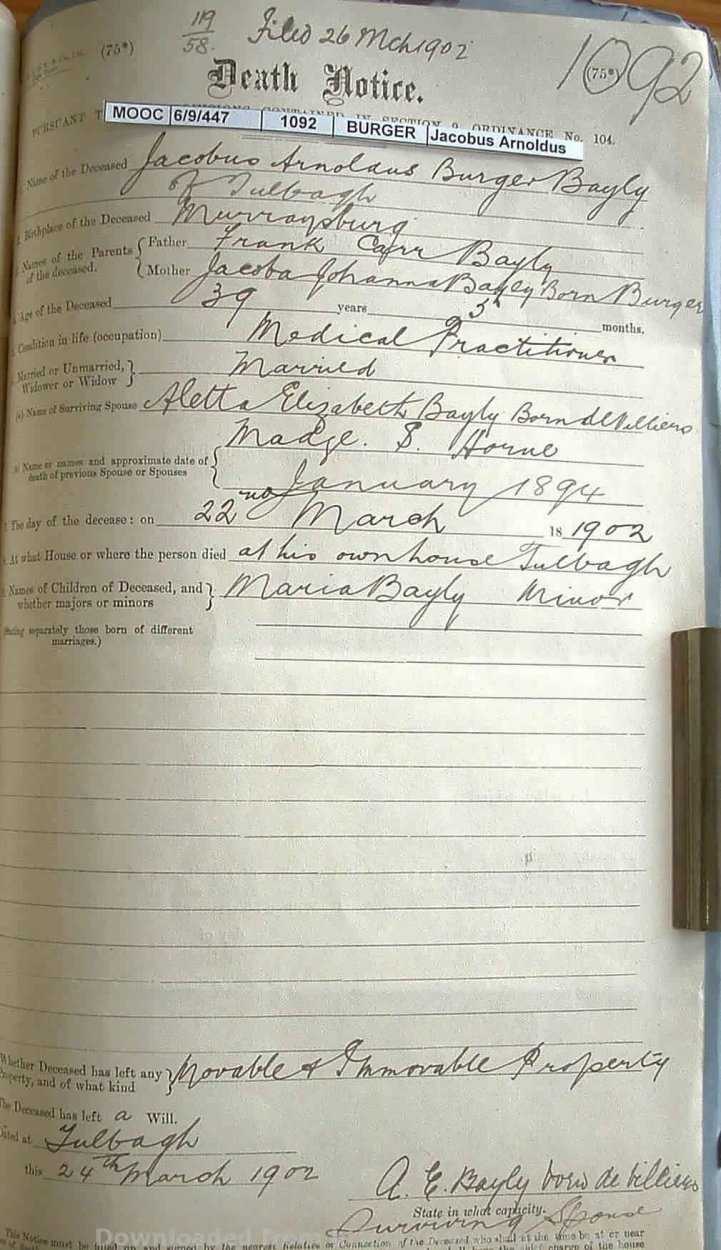 119
58.
Filed 26 Mch 1902
(75*)
(75*)
1092
Death Notice.
PURSUANT T
IN SECTION 9, ORDINANCE No. 104.
MOOC 6/9/447 1092 BURGER Jacobus Arnoldus
Name of the Deceased Jacobus Arnoldus Burger Bayly
of Tulbagh
Birthplace of the Deceased Murraysburg
Names of the Parents of the deceased. { Father Frank Carr Bayly
Mother Jacoba Johanna Bayly Born Burger
Age of the Deceased 39 years 5 months.
Condition in life (occupation) Medical Practitioner
Married or Unmarried, Widower or Widow } Married
(a) Name of Surviving Spouse Aletta Elizabeth Bayly Born de Villiers
Madge. S. Horne
Name or names and approximate date of death of previous Spouse or Spouses { January 1894
The day of the decease: on 22nd March 18 1902
At what House or where the person died at his own house Tulbagh
Names of Children of Deceased, and whether majors or minors } Maria Bayly Minor
(Stating separately those born of different marriages.)
Whether Deceased has left any Property, and of what kind } Movable & Immovable Property
The Deceased has left a Will.
Dated at Tulbagh
this 24th March 1902
A. E. Bayly born de Villiers
State in what capacity.
Surviving Spouse
Downloaded From
This Notice must be filled up and signed by the nearest Relative or Connection of the Deceased who shall at the time be at or near
charge of the house